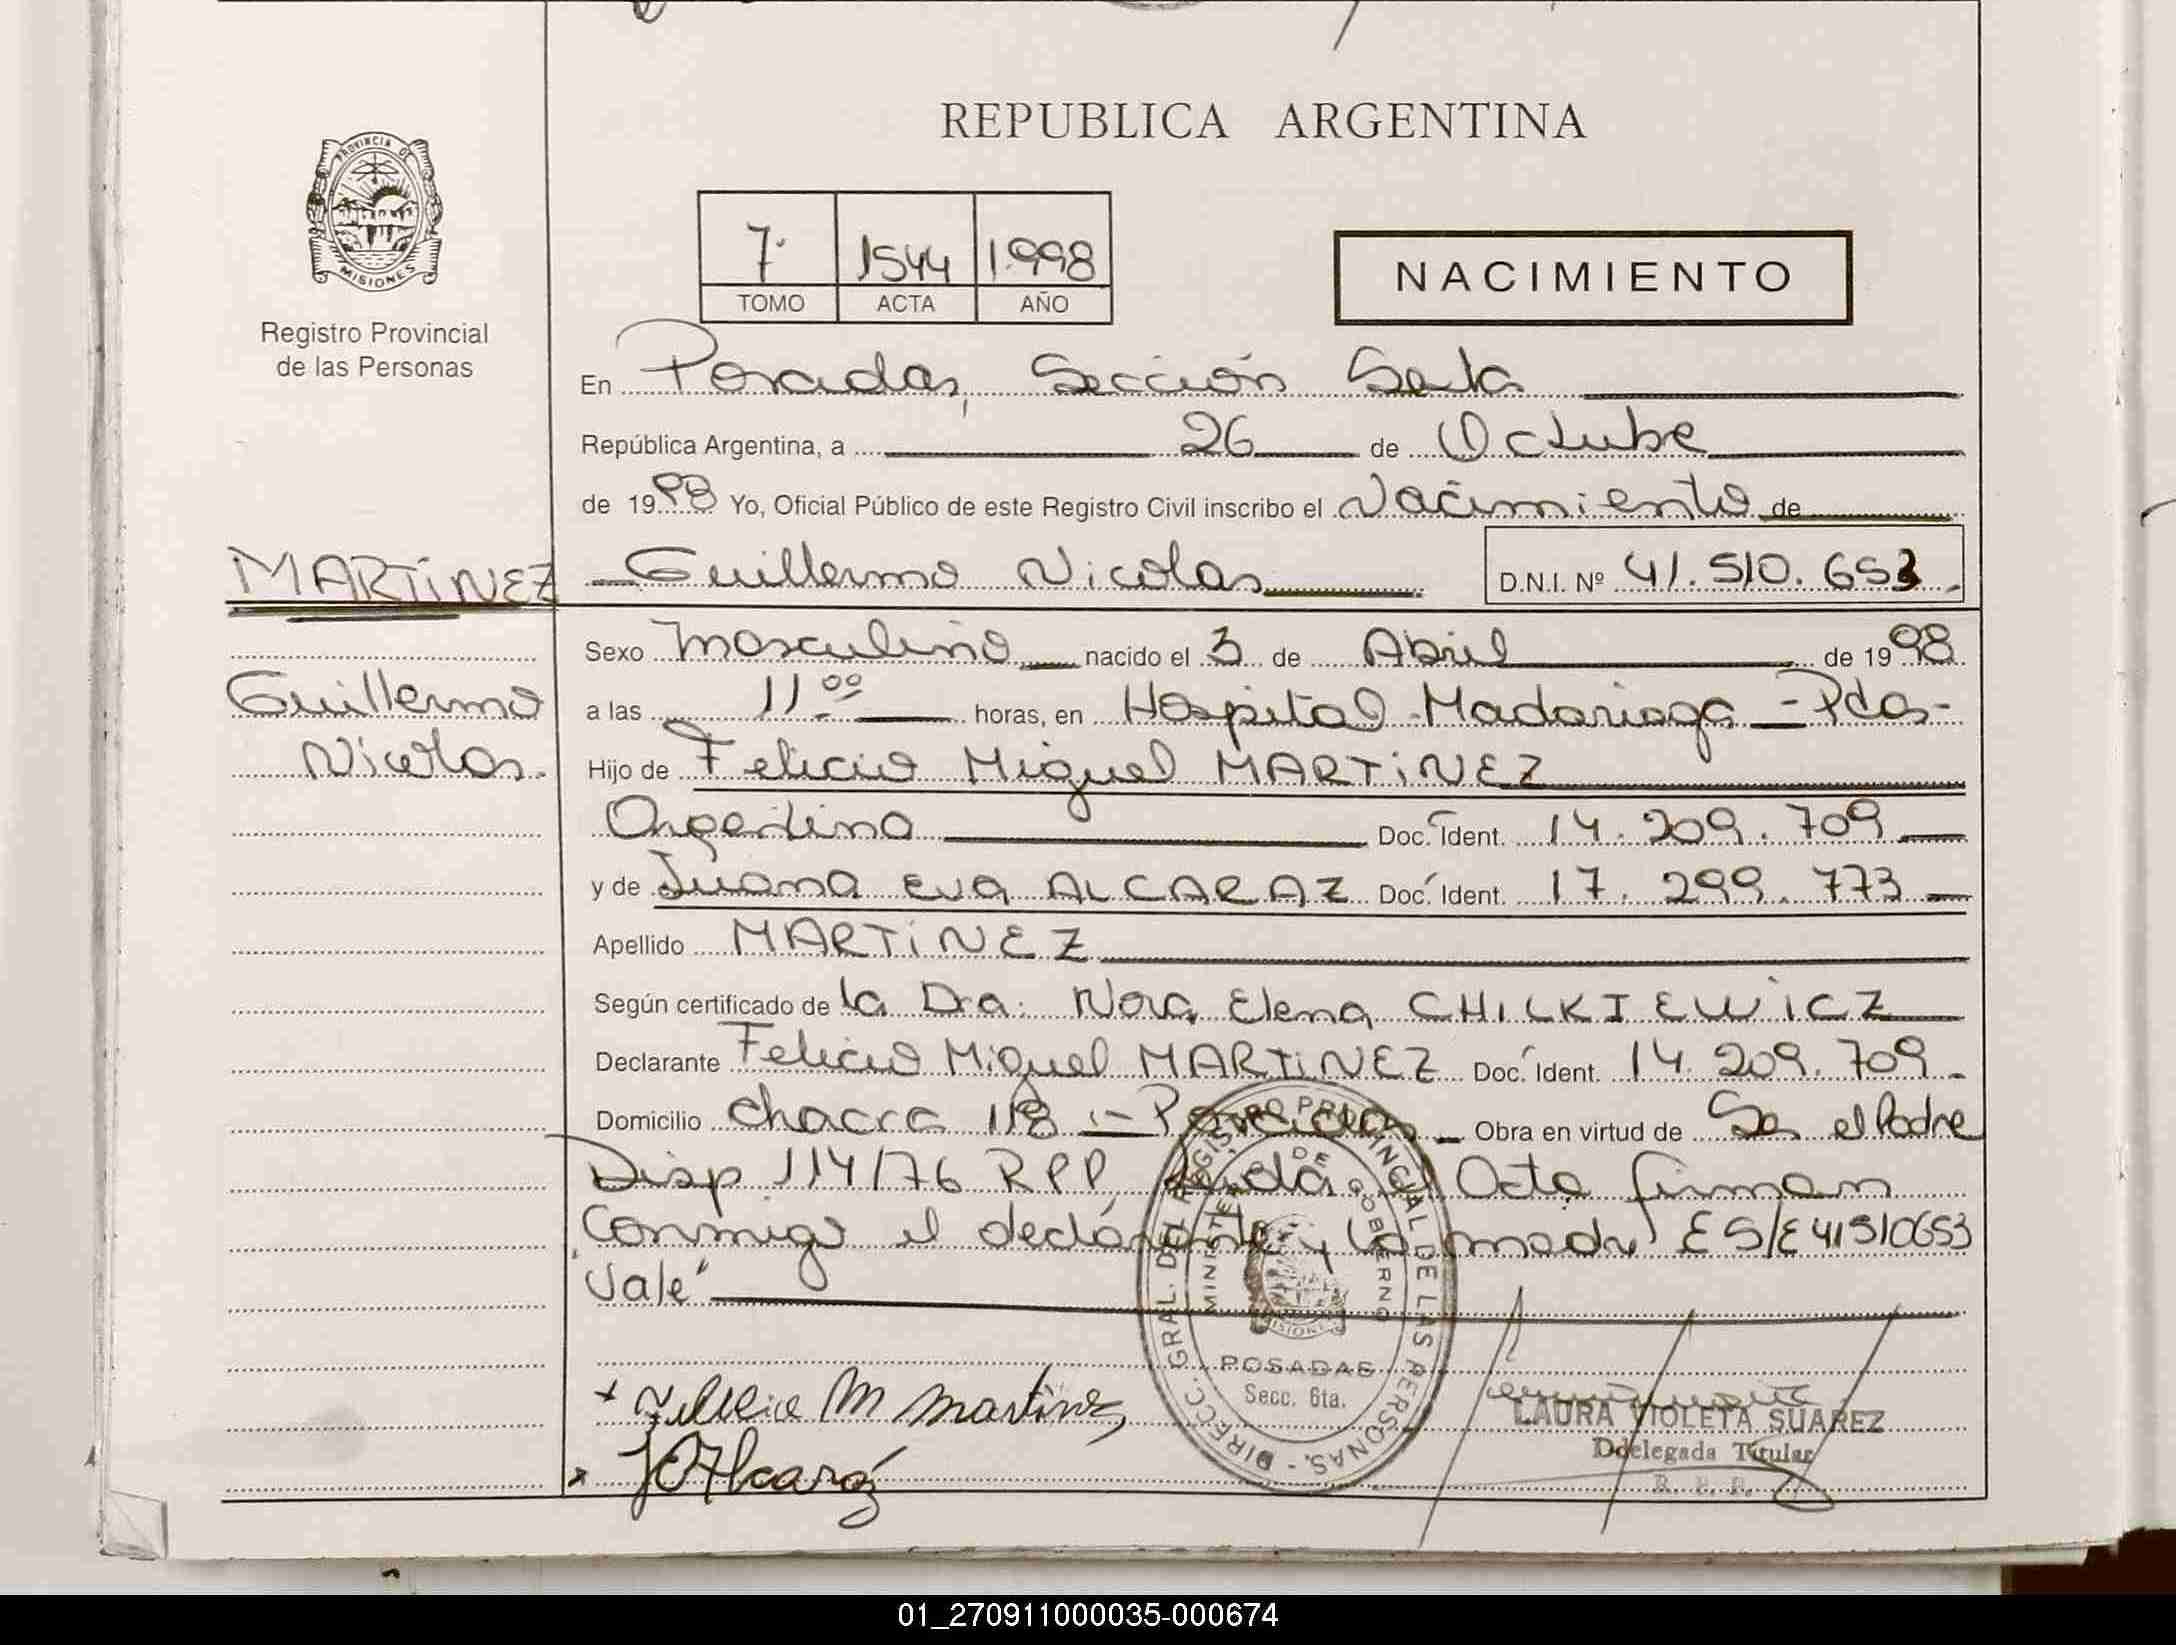 REPUBLICA ARGENTINA
PROVINCIA DE
MISIONES
Registro Provincial
de las Personas
7 1544 1.998
TOMO ACTA AÑO
NACIMIENTO
En Posadas, Sección Sexta
República Argentina, a 26 de Octubre
de 1998 Yo, Oficial Público de este Registro Civil inscribo el Nacimiento de
MARTINEZ Guillermo Nicolas D.N.I. Nº 41.510.653
Sexo Masculino nacido el 3 de Abril de 1998
Guillermo
Nicolas.
a las 11 00 horas, en Hospital Madariaga - Pdas-
Hijo de Felicio Miguel MARTINEZ
Argentino Doc. Ident. 14.209.709
y de Juana Eva ALCARAZ Doc. Ident. 17.299.773
Apellido MARTINEZ
Según certificado de la Dra. Nora Elena CHILKIEWICZ
Declarante Felicio Miguel MARTINEZ Doc. Ident. 14.209.709
Domicilio Chacra 118 - Posadas Obra en virtud de Ser el Padre
Disp 114/76 RPP, el Acta firman
Conmigo el declarante y la madre E S/E 41510653
"Vale"
DIRECC. GRAL. DEL REGISTRO PROVINCIAL DE LAS PERSONAS
MINISTERIO DE GOBIERNO
MISIONES
POSADAS
Secc. 6ta.
Felicio M Martinez
J E Alcaraz
LAURA VIOLETA SUAREZ
Delegada Titular
R. P. P.
01_270911000035-000674